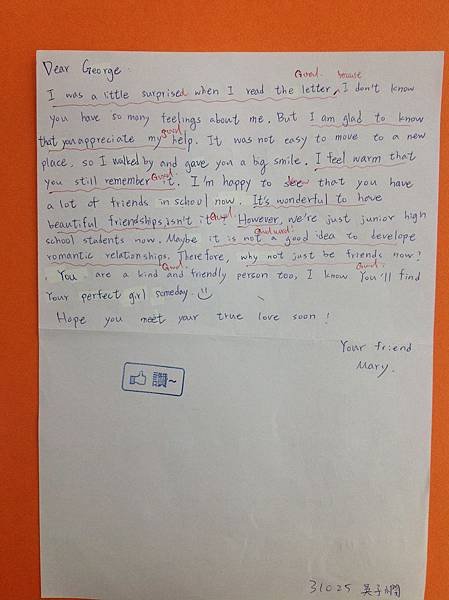 Dear George :
Good. because
I was a little surprised when I read the letter, I don't know
you have so many feelings about me. But I am glad to know
that you appreciate my help. It was not easy to move to a new
good
place, so I walked by and gave you a big smile. I feel warm that
you still remember it. I'm happy to see that you have
Good.
a lot of friends in school now. It's wonderful to have
beautiful friendships, isn't it? However, we're just junior high
Good.
school students now. Maybe it is not a good idea to develope
good word!
romantic relationships. Therefore, why not just be friends now?
You are a kind and friendly person too, I know You'll find
Good. Good.
Your perfect girl someday.
Hope you meet your true love soon !
Your friend
Mary.
讚~
31025 吳子嫺